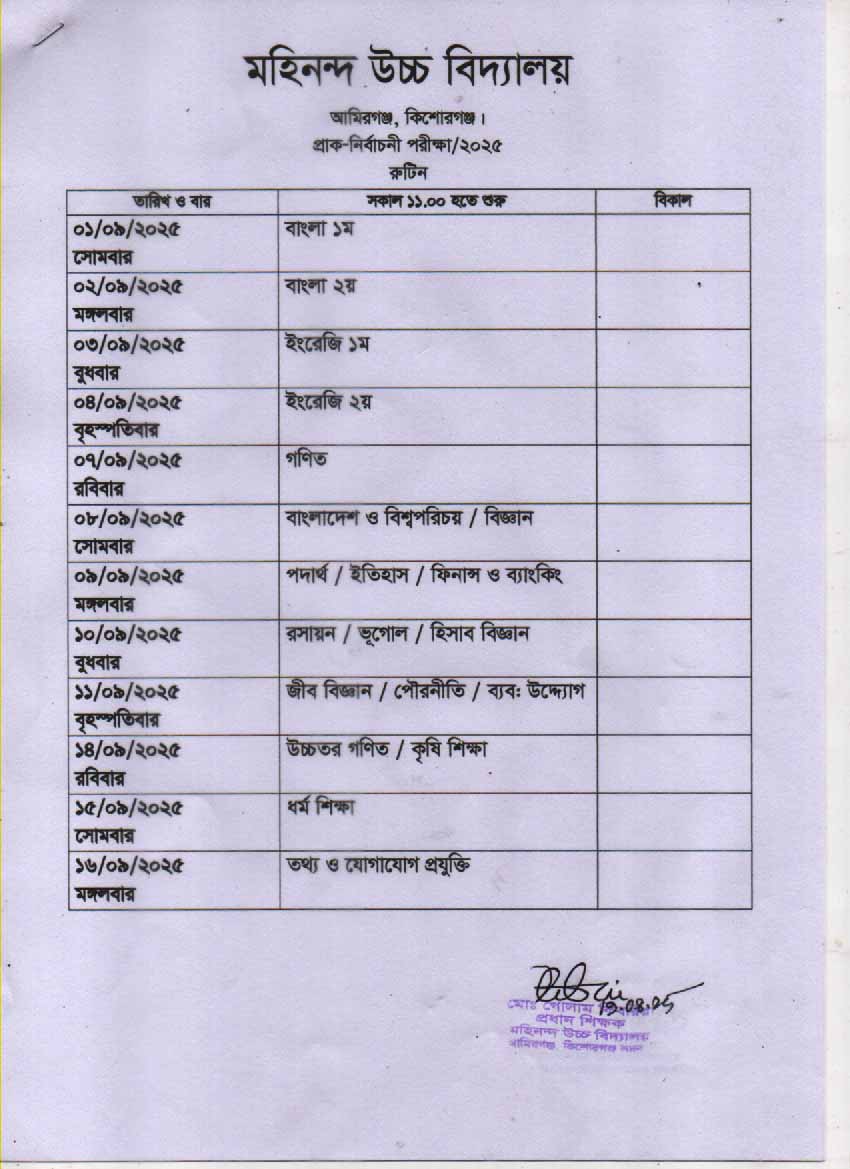 মহিনন্দ উচ্চ বিদ্যালয়
আমিরগঞ্জ, কিশোরগঞ্জ।
প্রাক-নির্বাচনী পরীক্ষা/২০২৫
রুটিন
তারিখ ও বার সকাল ১১.০০ হতে শুরু বিকাল
০১/০৯/২০২৫ বাংলা ১ম
সোমবার
০২/০৯/২০২৫ বাংলা ২য়
মঙ্গলবার
০৩/০৯/২০২৫ ইংরেজি ১ম
বুধবার
০৪/০৯/২০২৫ ইংরেজি ২য়
বৃহস্পতিবার
০৭/০৯/২০২৫ গণিত
রবিবার
০৮/০৯/২০২৫ বাংলাদেশ ও বিশ্বপরিচয় / বিজ্ঞান
সোমবার
০৯/০৯/২০২৫ পদার্থ / ইতিহাস / ফিনান্স ও ব্যাংকিং
মঙ্গলবার
১০/০৯/২০২৫ রসায়ন / ভূগোল / হিসাব বিজ্ঞান
বুধবার
১১/০৯/২০২৫ জীব বিজ্ঞান / পৌরনীতি / ব্যব: উদ্দ্যোগ
বৃহস্পতিবার
১৪/০৯/২০২৫ উচ্চতর গণিত / কৃষি শিক্ষা
রবিবার
১৫/০৯/২০২৫ ধর্ম শিক্ষা
সোমবার
১৬/০৯/২০২৫ তথ্য ও যোগাযোগ প্রযুক্তি
মঙ্গলবার
মোঃ গোলাম
প্রধান শিক্ষক
মহিনন্দ উচ্চ বিদ্যালয়
আমিরগঞ্জ, কিশোরগঞ্জ সদর